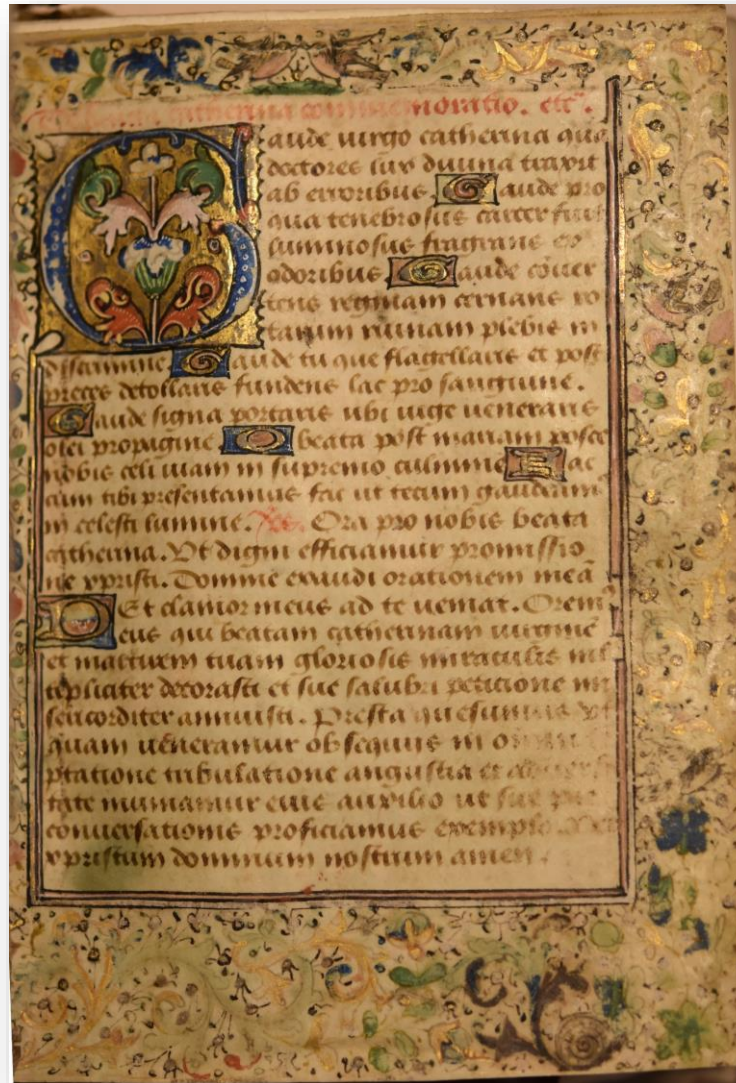 catherina commemoratio. etc.
Gaude uirgo catherina qua
doctores lux diuina traxit
ab erroribus Gaude pro
qua tenebrosus carcer fuit
luminosus fragrans ex
odoribus Gaude conuer
tens reginam cernens ro
tarum ruinam plebis in
discrimine Gaude tu que flagellaris et post
preces decollaris fundens lac pro sanguine.
Gaude signa portaris ubi iuge ueneraris
olei propagine O beata post mariam posce
nobis celi uiam in supremo culmine Hac
cum tibi presentamus fac ut tecum gaudeam
in celesti lumine. Ora pro nobis beata
catherina. Vt digni efficiamur promissio
ne xpristi. Domine exaudi orationem meā
Et clamor meus ad te ueniat. Orem
Deus qui beatam catherinam uirginē
et martirem tuam gloriosis miraculis ml
tipliciter decorasti et sue salubri peticione mi
sericorditer annuisti. Presta quesumus vt
quam ueneramur obsequiis in
ptatione tribulatione angustia et aduersi
tate muniamur eius auxilio ut sue
conuersationis proficiamus exemplo
xpristum dominum nostrum amen.